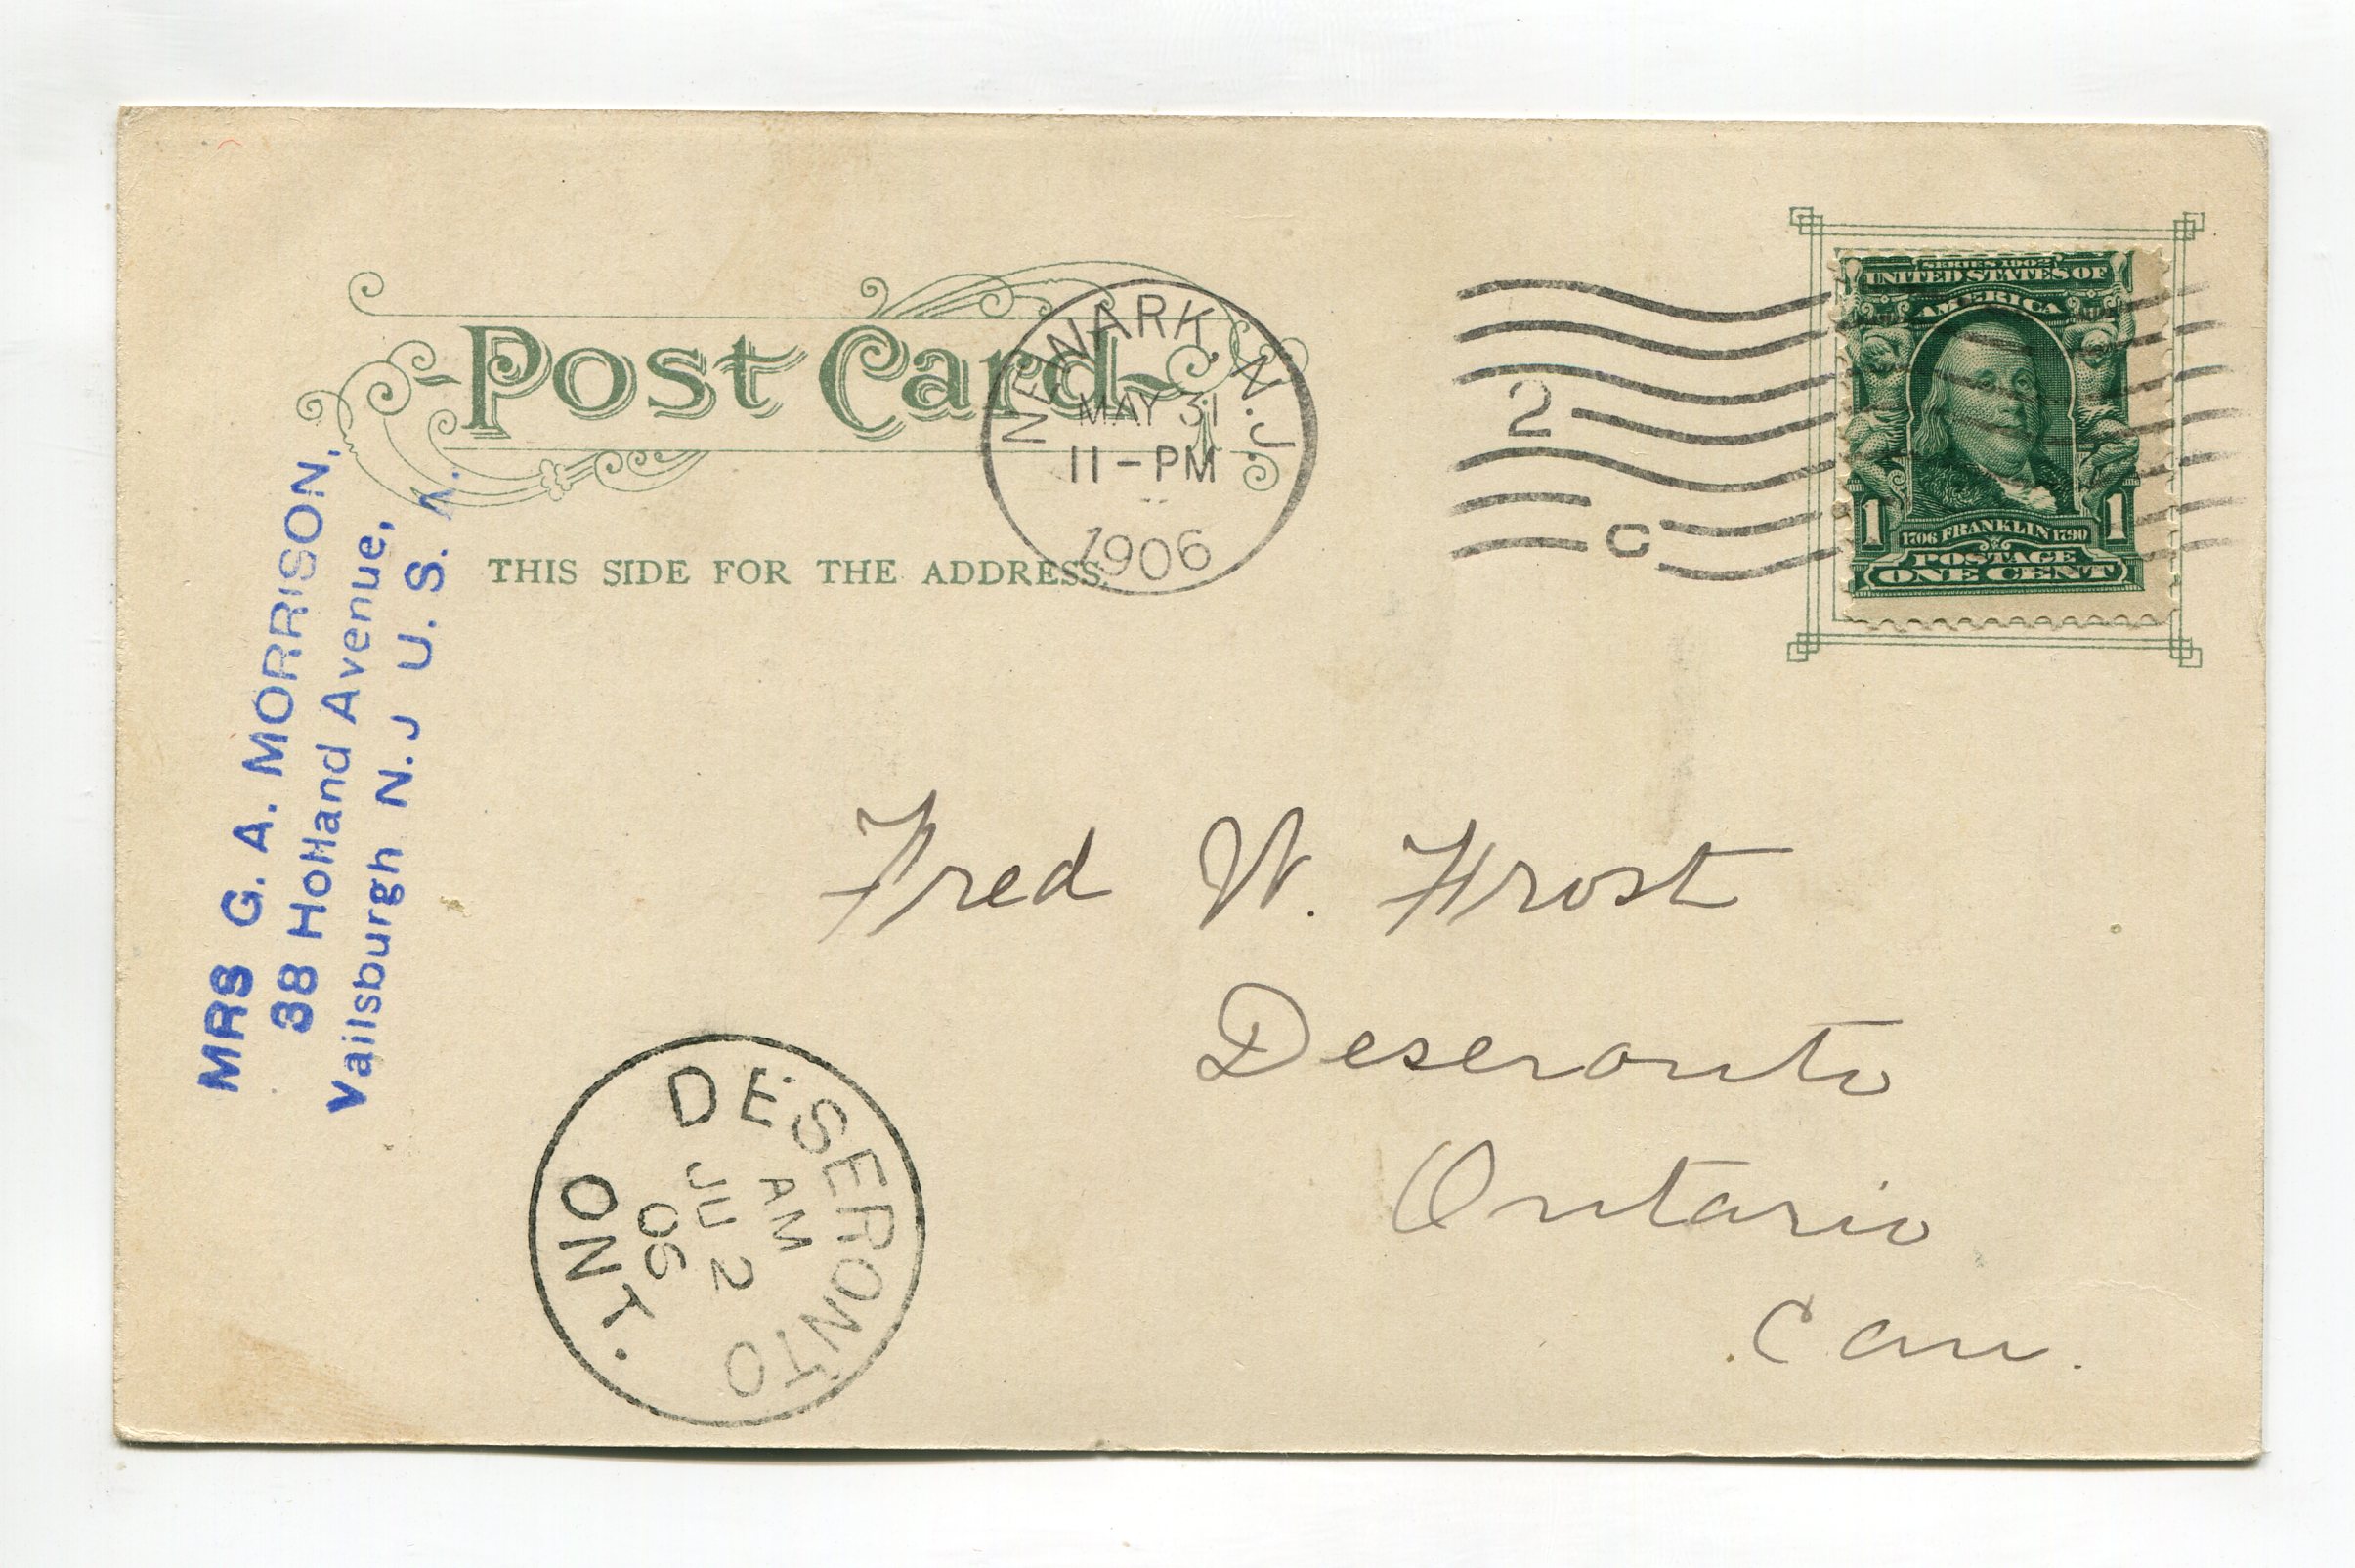 Post Card
THIS SIDE FOR THE ADDRESS.
NEWARK, N.J.
MAY 31
11-PM
1906
2
C
SERIES 1902
UNITED STATES OF
AMERICA
1 1
1706 FRANKLIN 1790
POSTAGE
ONE CENT
MRS G. A. MORRISON,
38 Holland Avenue,
Vailsburgh N.J U. S. A.
Fred W. Frost
Deseronto
Ontario
Can.
DESERONTO
AM
JU 2
06
ONT.